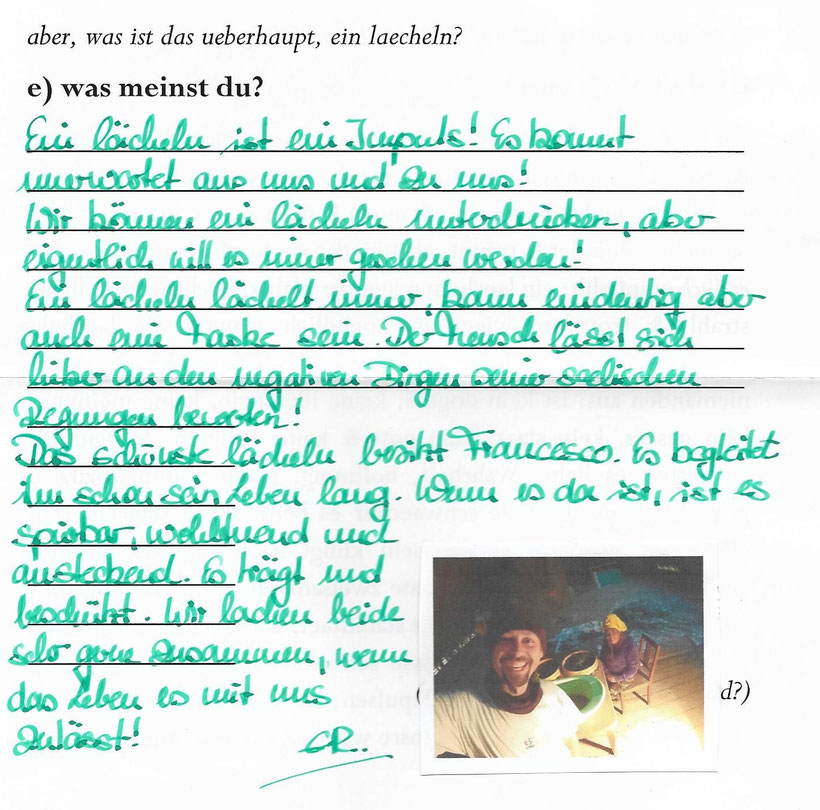 aber, was ist das ueberhaupt, ein laecheln?
e) was meinst du?
Ein lächeln ist ein Impuls! Es kommt
unerwartet aus uns und zu uns!
Wir können ein lächeln unterdrücken, aber
eigentlich will es immer gesehen werden!
Ein lächeln lächelt immer, kann eindeutig aber
auch eine Maske sein. Der Mensch lässt sich
lieber an den negativen Dingen seiner seelischen
Regungen bewerten!
Das schönste lächeln besitzt Francesco. Es begleitet
ihn schon sein Leben lang. Wenn es da ist, ist es
spürbar, wohltuend und
ansteckend. Es trägt und
beschützt. Wir lachen beide
sehr gerne zusammen, wenn
das Leben es mit uns
zulässt!
CR.
d?)